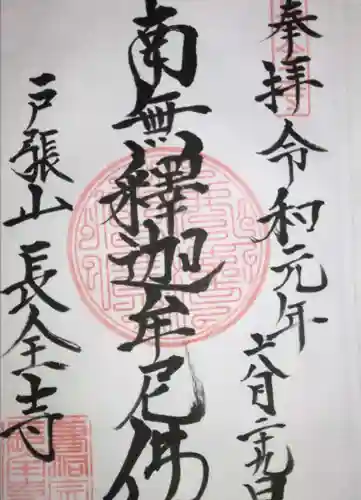 奉拝 令和元年六月二十九日
南無釋迦牟尼佛
戸張山 長全寺